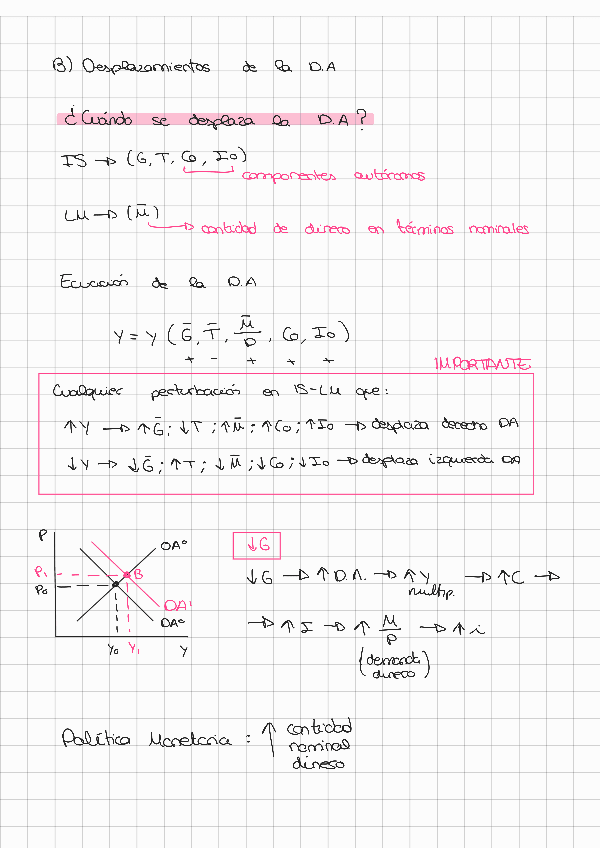 B) Desplazamientos de la D.A
¿Cuándo se desplaza la D.A?
IS → (G, T, C0, I0)
componentes autónomos
LM → (M̄)
→ cantidad de dinero en términos nominales
Ecuación de la D.A
Y = Y (Ḡ, T̄, M̄/P, C0, I0)
+ - + + +
IMPORTANTE
Cualquier perturbación en IS-LM que:
↑Y → ↑Ḡ; ↓T; ↑M̄; ↑C0; ↑I0 → desplaza derecha DA
↓Y → ↓Ḡ; ↑T; ↓M̄; ↓C0; ↓I0 → desplaza izquierda DA
P
OA⁰
P1
B
P0
DA¹
DA⁰
Y0 Y1 Y
↓G
↓G → ↑D.A. → ↑Y → ↑C →
multip.
→ ↑I → ↑ M/P → ↑i
(demanda
dinero)
Política Monetaria: ↑ cantidad
nominal
dinero